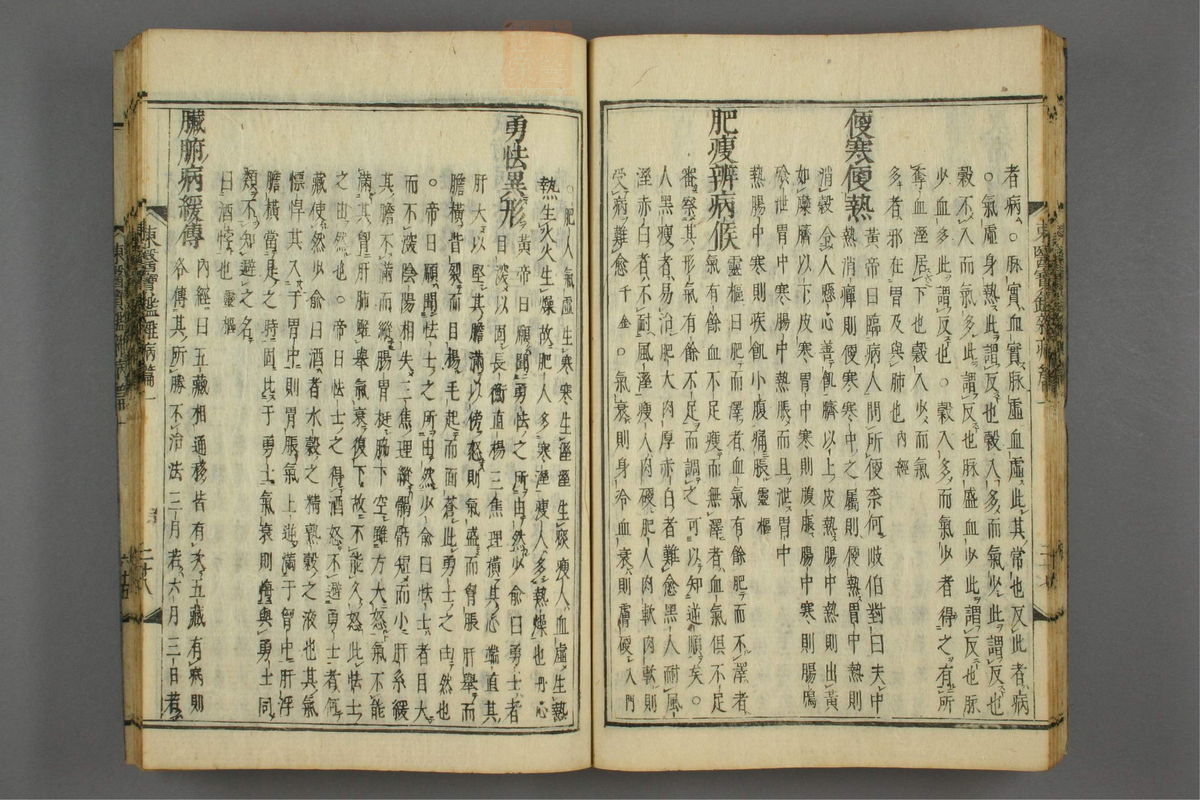 者病○脉實血實脉虛血虛此其常也反此者病
○氣虛身熱此謂反也穀入多而氣少此謂反也
穀不入而氣多此謂反也脉盛血少此謂反也脉
少血多此謂反也○穀入多而氣少者得之有所
奪血濕居下也穀入少而氣
多者邪在胃及與肺也內經
便寒便熱
黃帝曰臨病人問所便奈何岐伯對曰夫中
熱消癉則便寒寒中之屬則便熱胃中熱則
消穀令人懸心善飢臍以上皮熱腸中熱則出黃
如糜臍以下皮寒胃中寒則腹脹腸中寒則腸鳴
飱泄胃中寒腸中熱脹而且泄胃中
熱腸中寒則疾飢小腹痛脹靈樞
肥瘦辨病候
靈樞曰肥而澤者血氣有餘肥而不澤者
氣有餘血不足瘦而無澤者血氣俱不足
審察其形氣有餘不足而調之可以知逆順矣○
人黑瘦者易治肥大肉厚赤白者難愈黑人耐風
濕赤白者不耐風濕瘦人肉硬肥人肉軟肉軟則
受病難愈千金○氣衰則身冷血衰則膚硬入門
○肥人氣虛生寒寒生濕濕生痰瘦人血虛生熱
熱生火火生燥故肥人多寒濕瘦人多熱燥也丹心
勇怯異形
黃帝曰願聞勇怯之所由然少俞曰勇士者
目深以固長衝直揚三焦理橫其心端直其
肝大以堅其膽滿以傍怒則氣盛而胷脹肝舉而
膽橫眥裂而目揚毛起而面蒼此勇士之由然也
○帝曰願聞怯士之所由然少俞曰怯士者目大
而不深陰陽相失三焦理縱𩩲骬短而小肝系緩
其膽不滿而縱腸胃挺脇下空雖方大怒氣不能
滿其胷肝肺雖舉氣衰復下故不能久怒此怯士
之由然也○帝曰怯士之得酒怒不避勇士者何
藏使然少俞曰酒者水穀之精熟穀之液也其氣
慓悍其入于胃中則胃脹氣上逆滿于胷中肝浮
膽橫當是之時固比于勇士氣衰則悔與勇士同
類不知避之名
曰酒悖也靈樞
臟腑病緩傳
內經曰五藏相通移皆有次五藏有病則
各傳其所勝不治法三月若六月三日若
東醫寶鑑雜病篇一
二十八